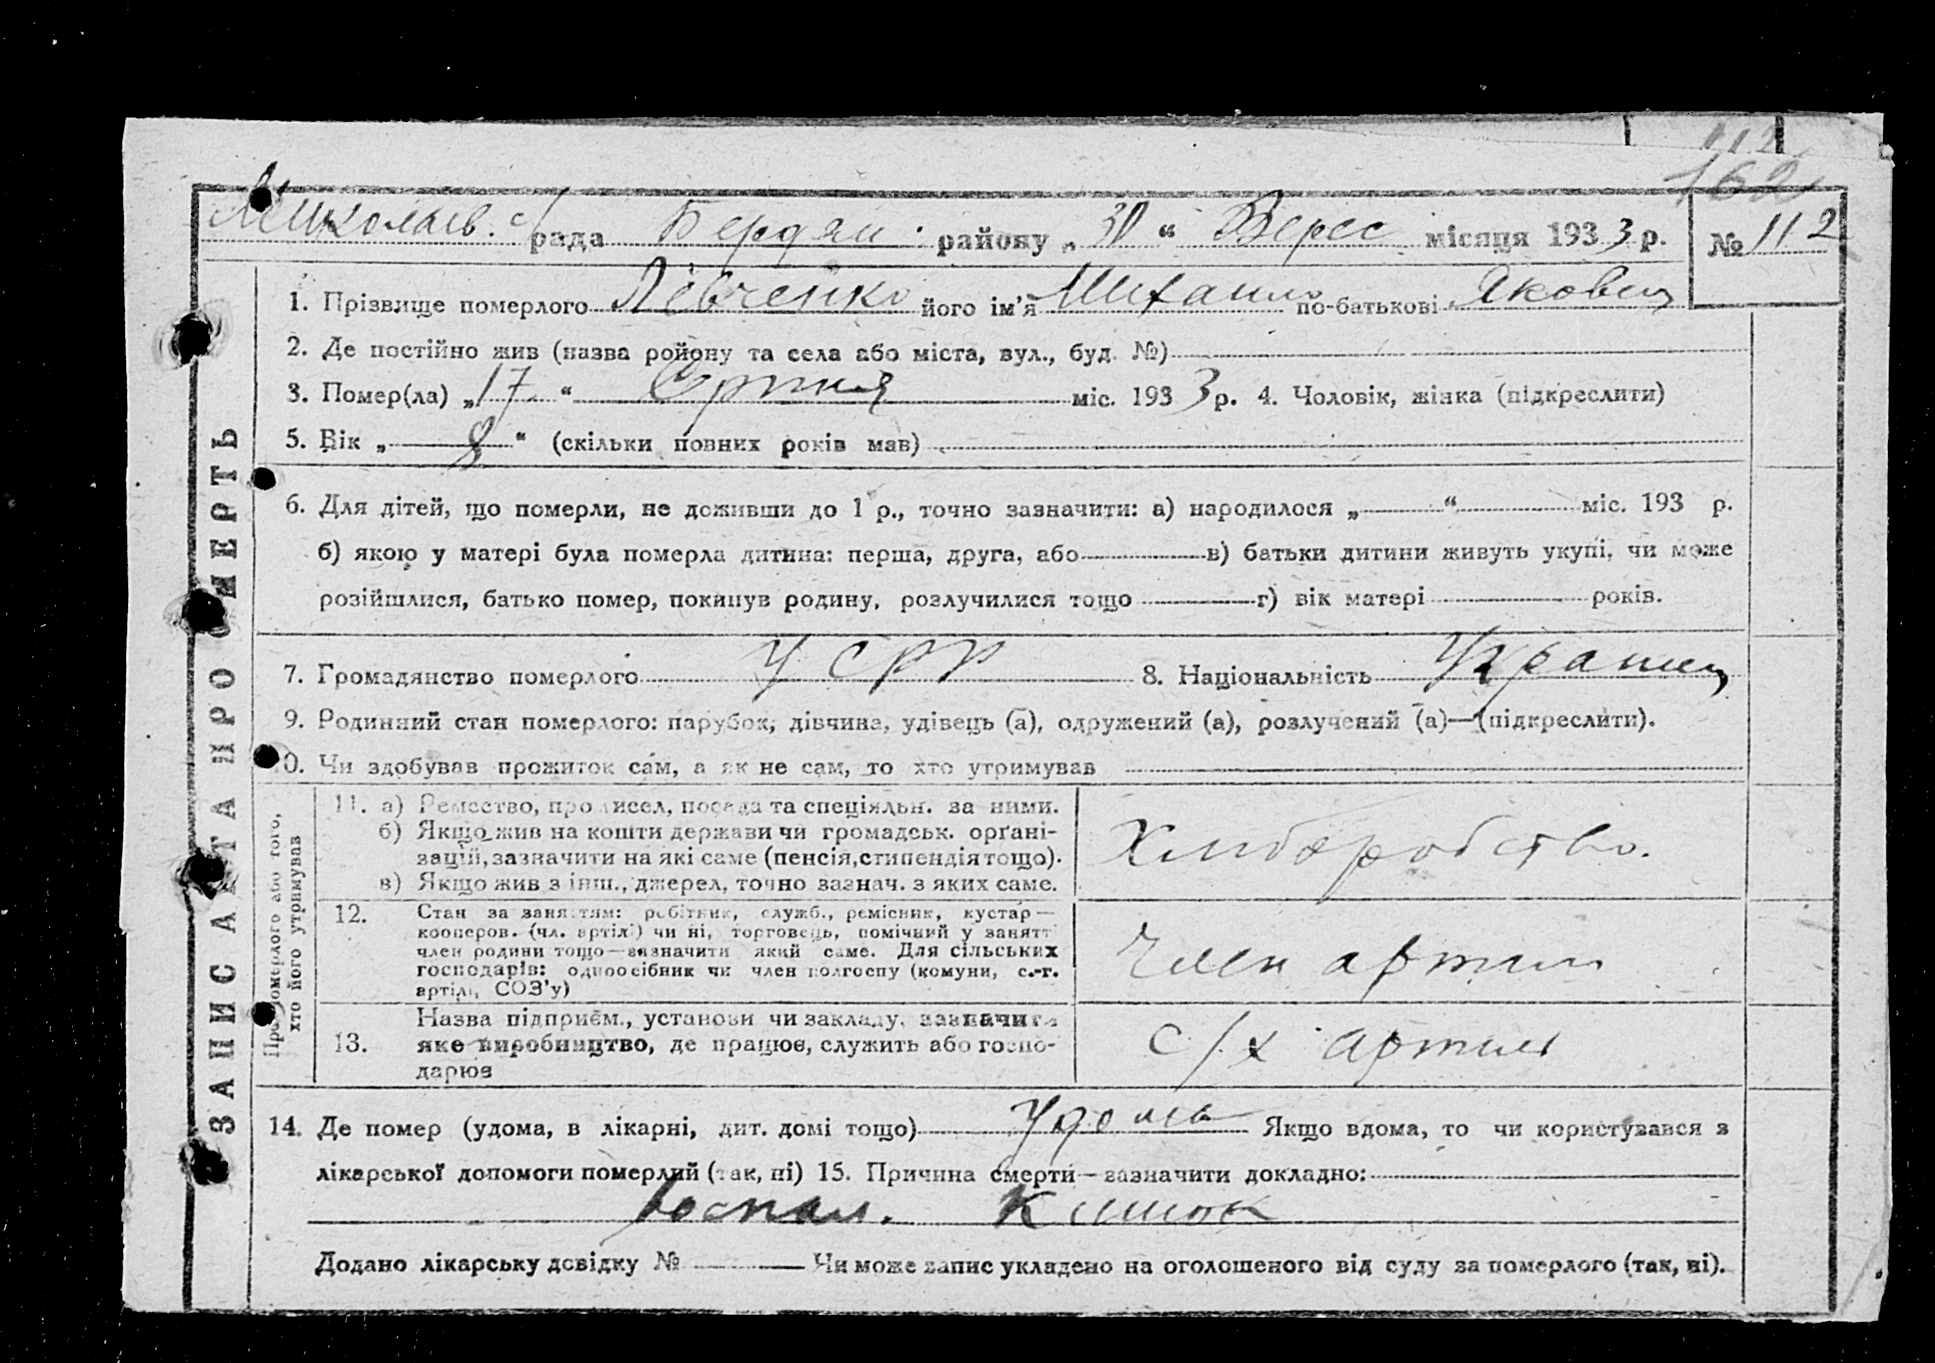 112
162
Миколаїв. с/рада Бердян. району „30“ Верес місяця 1933 р. № 112
1. Прізвище померлого Левченко його ім’я Михайло по-батькові Якович
2. Де постійно жив (назва ройону та села або міста, вул., буд. №)
3. Помер(ла) „17“ Серпня міс. 1933 р. 4. Чоловік, жінка (підкреслити)
5. Вік „8“ (скільки повних років мав)
6. Для дітей, що померли, не доживши до 1 р., точно зазначити: а) народилося „ “ міс. 193 р.
б) якою у матері була померла дитина: перша, друга, або в) батьки дитини живуть укупі, чи може
розійшлися, батько помер, покинув родину, розлучилися тощо г) вік матері років.
7. Громадянство померлого УСРР 8. Національність Украинец
9. Родинний стан померлого: парубок, дівчина, удівець (а), одружений (а), розлучений (а)—(підкреслити).
10. Чи здобував прожиток сам, а як не сам, то хто утримував
11. а) Ремество, промисел, посада та спеціяльн. за ними.
б) Якщо жив на кошти держави чи громадськ. орґані-
зацій, зазначити на які саме (пенсія, стипендія тощо).
в) Якщо жив з інш., джерел, точно зазнач. з яких саме.
Хлиборобство.
12. Стан за заняттям: робітник, служб., ремісник, кустар—
кооперов. (чл. артілі) чи ні, торговець, помічний у занятті
член родини тощо—зазначити який саме. Для сільських
господарів: одноосібник чи член колгоспу (комуни, с.-г.
артілі, СОЗ’у)
Член артили
13. Назва підприєм., установи чи закладу, зазначити
яке виробництво, де працює, служить або госпо-
дарює
с/х артиль
14. Де помер (удома, в лікарні, дит. домі тощо) Удома Якщо вдома, то чи користувався з
лікарської допомоги померлий (так, ні) 15. Причина смерти—зазначити докладно:
воспал. Кишок
Додано лікарську довідку № Чи може запис укладено на оголошеного від суду за померлого (так, ні).
ЗАПИС АКТА ПРО СМЕРТЬ
Про померлого або того,
хто його утримував